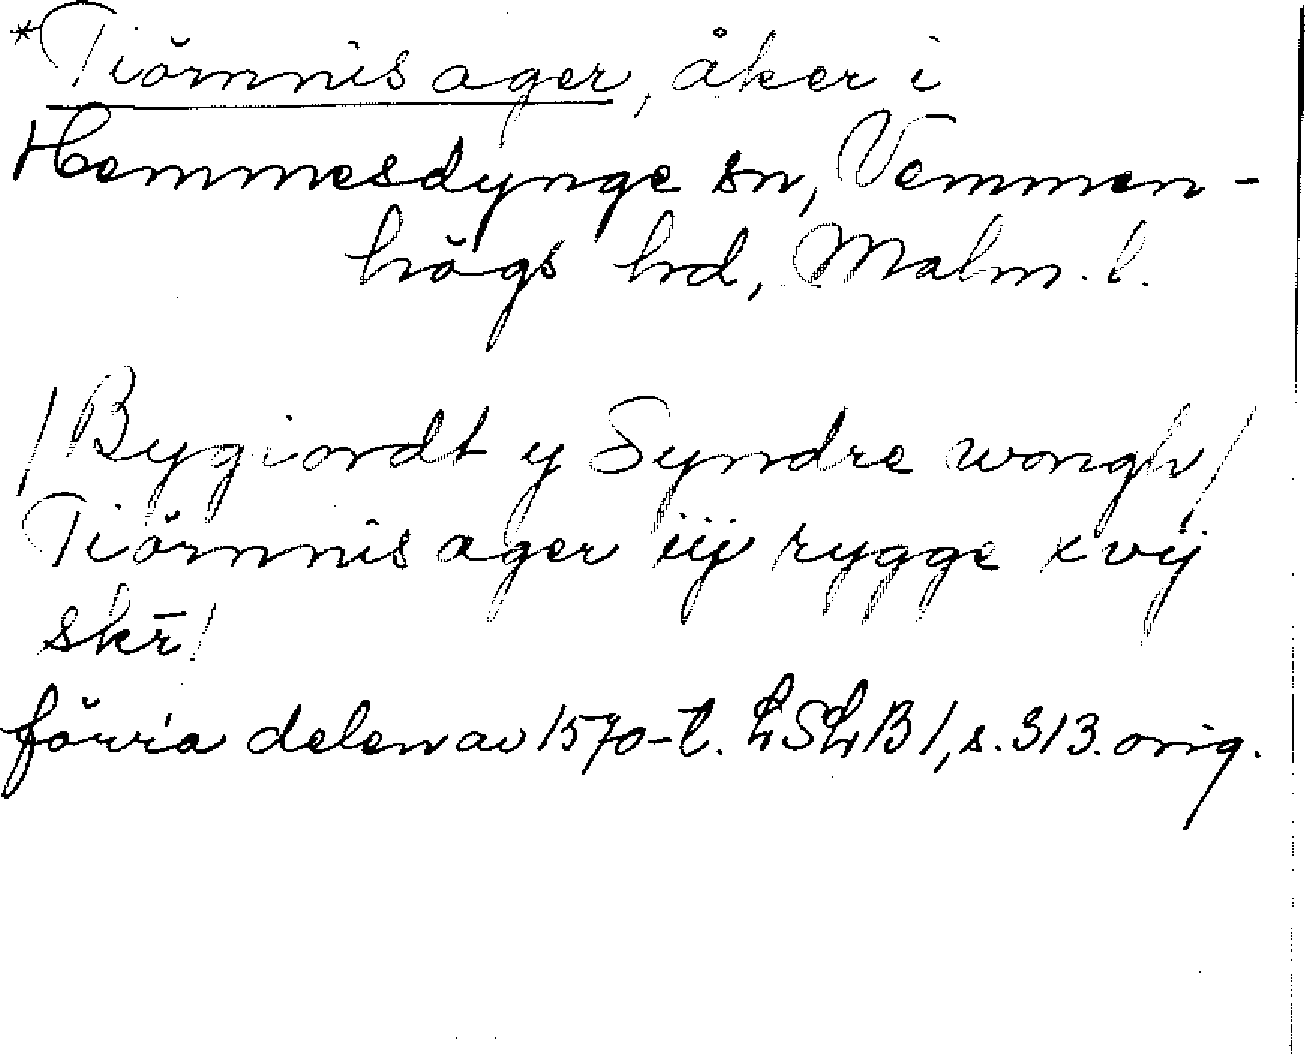 *Tiörnnis ager, åker i
Hemmesdynge sn, Vemmen-
högs hd, Malm. l.
/Bygiordt y Syndre wongh/
Tiörnnis ager iij rygge xvij
skr̄/
förra delen av 1570-t. LSLB1, s. 313. orig.